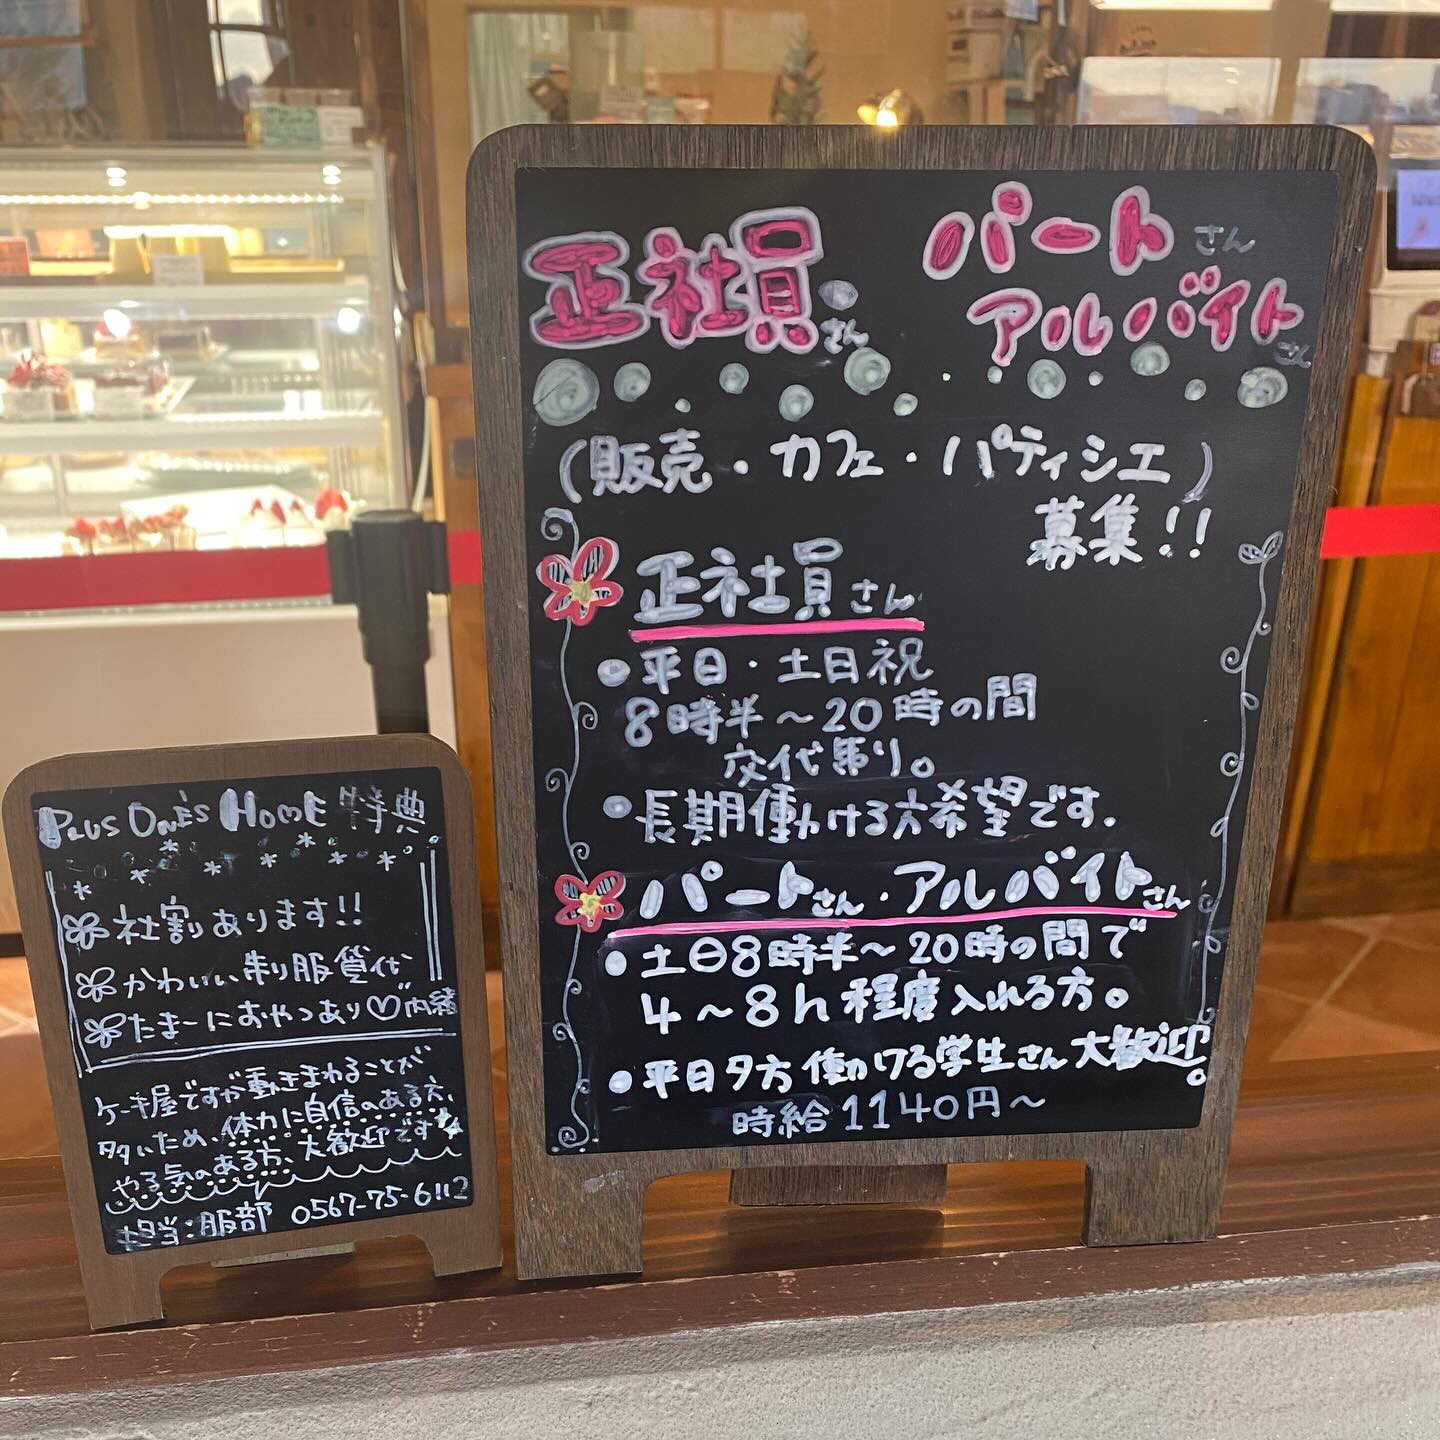 正社員さん
パートさん
アルバイトさん
(販売・カフェ・パティシエ)
募集!!
正社員さん
●平日・土日祝
8時半～20時の間
交代制り。
●長期働ける方希望です。
パートさん・アルバイトさん
●土日8時半～20時の間で
4～8h程度入れる方。
●平日夕方働ける学生さん大歓迎。
時給1140円～
PLUS ONE'S HOME 特典
社割あります!!
かわいい制服貸代
たまーにおやつあり♡内緒
ケーキ屋ですが動きまわることが
多いため、体力に自信のある方、
やる気のある方、大歓迎です
担当:服部 0567-75-6112